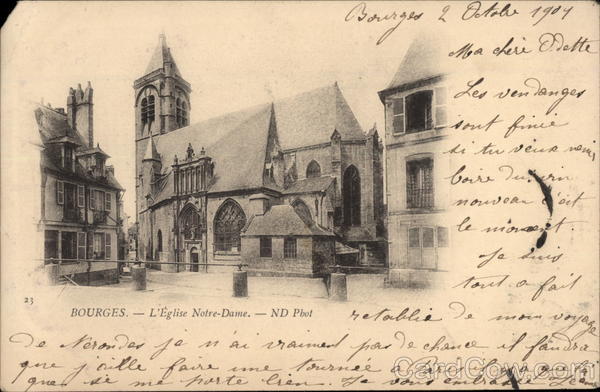 Bourges 2 Octobre 1904
Ma chère Odette
Les vendanges
sont finie
si tu veux venir
boire du vin
nouveau c'est
le moment.
Je suis
tout a fait
23
BOURGES. — L'Église Notre-Dame. — ND Phot
retablie de mon voyage
de Nerondes je n'ai vraiment pas de chance il faudra
que j'aille faire une tournée a
que sa me porte bien Je vous embrasse bien
CardCow.com